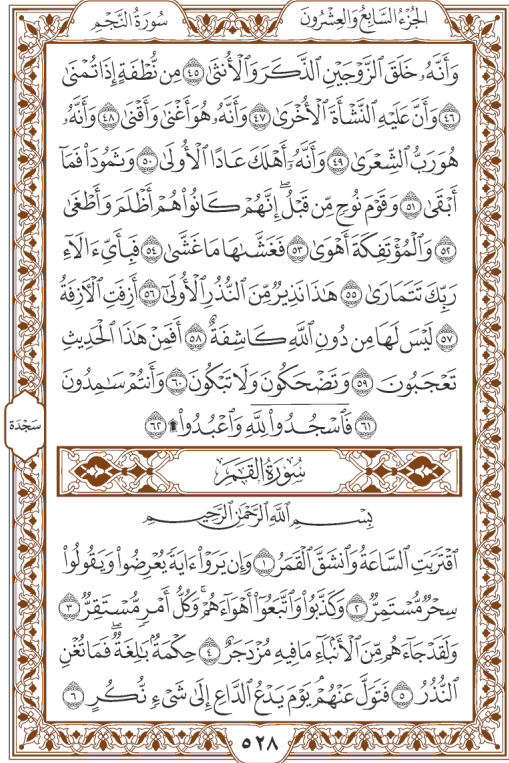 الجزء السابع والعشرون
سورة النجم
وَأَنَّهُۥ خَلَقَ ٱلزَّوْجَيْنِ ٱلذَّكَرَ وَٱلْأُنثَىٰ ٤٥ مِن نُّطْفَةٍ إِذَا تُمْنَىٰ
٤٦ وَأَنَّ عَلَيْهِ ٱلنَّشْأَةَ ٱلْأُخْرَىٰ ٤٧ وَأَنَّهُۥ هُوَ أَغْنَىٰ وَأَقْنَىٰ ٤٨ وَأَنَّهُۥ
هُوَ رَبُّ ٱلشِّعْرَىٰ ٤٩ وَأَنَّهُۥٓ أَهْلَكَ عَادًا ٱلْأُولَىٰ ٥٠ وَثَمُودَا۟ فَمَآ
أَبْقَىٰ ٥١ وَقَوْمَ نُوحٍ مِّن قَبْلُ ۖ إِنَّهُمْ كَانُوا۟ هُمْ أَظْلَمَ وَأَطْغَىٰ
٥٢ وَٱلْمُؤْتَفِكَةَ أَهْوَىٰ ٥٣ فَغَشَّىٰهَا مَا غَشَّىٰ ٥٤ فَبِأَىِّ ءَالَآءِ
رَبِّكَ تَتَمَارَىٰ ٥٥ هَـٰذَا نَذِيرٌ مِّنَ ٱلنُّذُرِ ٱلْأُولَىٰٓ ٥٦ أَزِفَتِ ٱلْـَٔازِفَةُ
٥٧ لَيْسَ لَهَا مِن دُونِ ٱللَّهِ كَاشِفَةٌ ٥٨ أَفَمِنْ هَـٰذَا ٱلْحَدِيثِ
تَعْجَبُونَ ٥٩ وَتَضْحَكُونَ وَلَا تَبْكُونَ ٦٠ وَأَنتُمْ سَـٰمِدُونَ
٦١ فَٱسْجُدُوا۟ لِلَّهِ وَٱعْبُدُوا۟ ۩ ٦٢
سجدة
سورة القمر
بِسْمِ ٱللَّهِ ٱلرَّحْمَـٰنِ ٱلرَّحِيمِ
ٱقْتَرَبَتِ ٱلسَّاعَةُ وَٱنشَقَّ ٱلْقَمَرُ ١ وَإِن يَرَوْا۟ ءَايَةً يُعْرِضُوا۟ وَيَقُولُوا۟
سِحْرٌ مُّسْتَمِرٌّ ٢ وَكَذَّبُوا۟ وَٱتَّبَعُوٓا۟ أَهْوَآءَهُمْ ۚ وَكُلُّ أَمْرٍ مُّسْتَقِرٌّ ٣
وَلَقَدْ جَآءَهُم مِّنَ ٱلْأَنۢبَآءِ مَا فِيهِ مُزْدَجَرٌ ٤ حِكْمَةٌۢ بَـٰلِغَةٌ ۖ فَمَا تُغْنِ
ٱلنُّذُرُ ٥ فَتَوَلَّ عَنْهُمْ ۘ يَوْمَ يَدْعُ ٱلدَّاعِ إِلَىٰ شَىْءٍ نُّكُرٍ ٦
٥٢٨